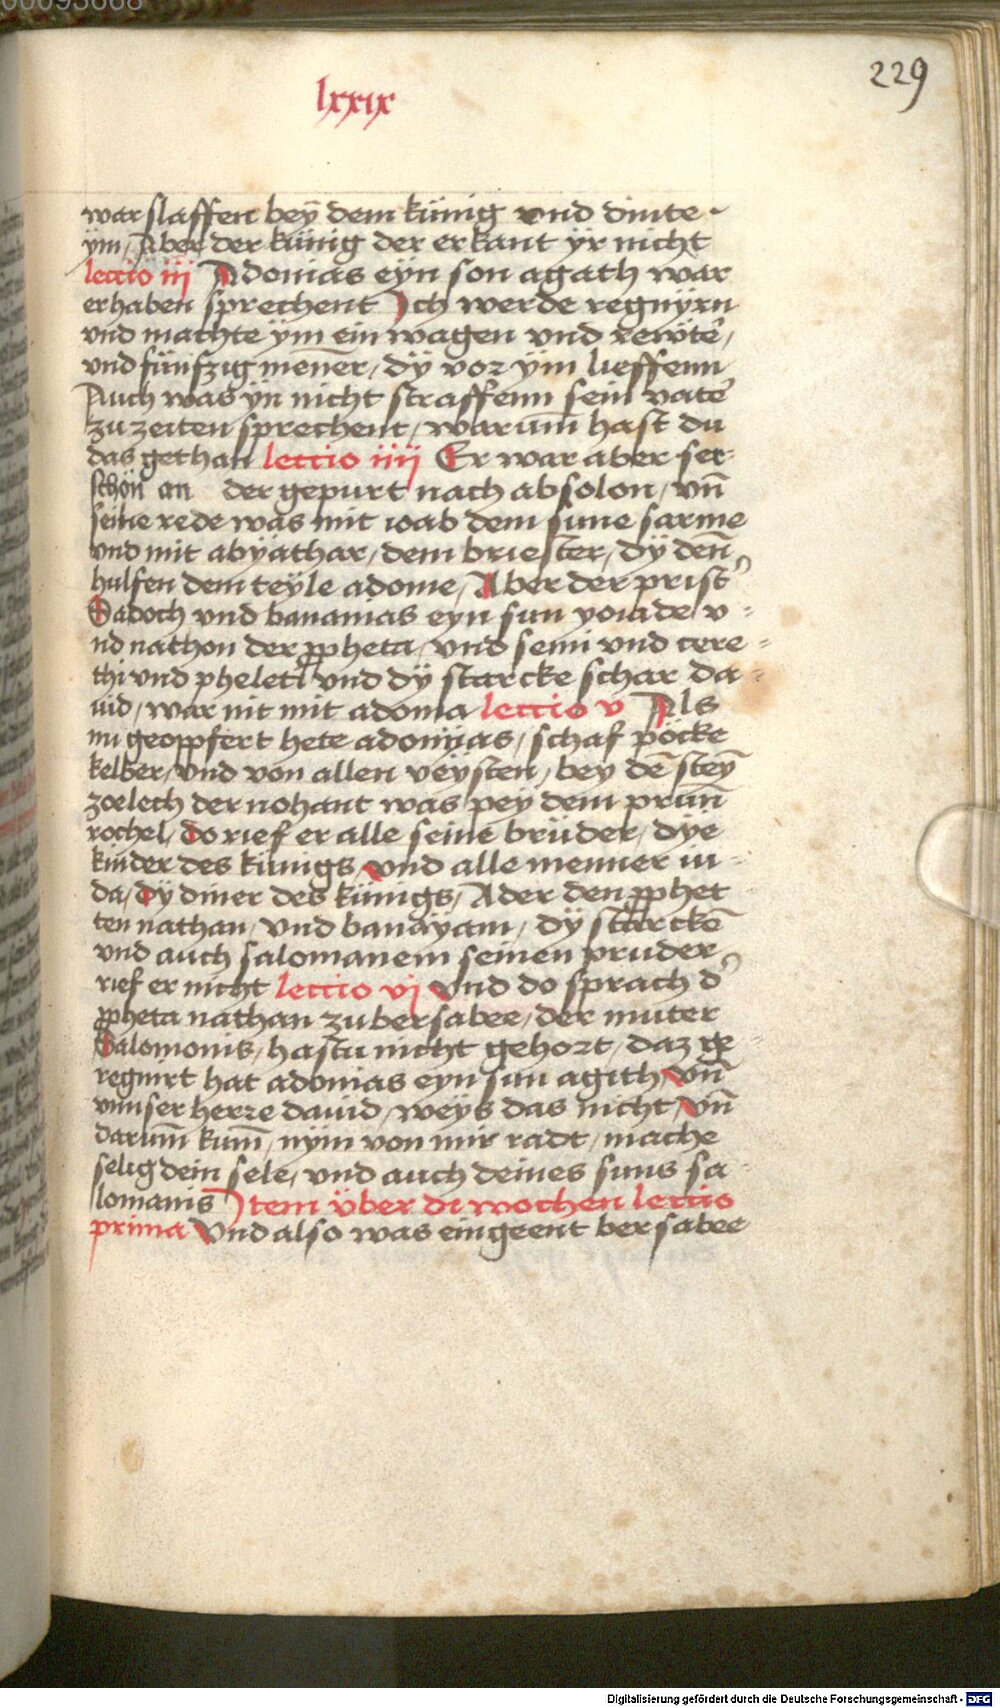 00093668
229
lxxix
war slaffen beÿ dem künig vnd dinte
ÿm / Aber der künig der erkant ÿr nicht
lectio iii Adonias eÿn son agath war
erhaben sprechent Ich werde regnÿrn
vnd machte ÿm ein wagen vnd rewter /
vnd fünfzig menner / dÿ vor ÿm lieffenn
Auch was ÿn nicht straffenn sein vate
zu zeiten sprechent / warum̄ hast du
das gethan lectio iiij Er war aber ser
schön an der gepurt nach absolon / vn̄
seine rede was mit ioab dem sune sarme
vnd mit abÿathar / dem briester / dÿ den̄
hulfen dem teÿle adonie / Aber der prist
Sadoch vnd banamas eÿn sun yoiade v-
nd nathon der ꝓpheta / vnd semi vnd cere-
thi vnd pheleti vnd dÿ starcke schar da-
uid / war nit mit adonia lectio v Als
nu geopfert hete adonÿas / schaf pöcke
kelber / vnd von allen veÿsten / beÿ de̅ steÿ
zoelech der nohant was peÿ dem prun̄
rochel / do rief er alle seine brüder / dÿe
kinder des künigs vnd alle menner iu-
da / dÿ diner des künigs / Ader den ꝓphet
ten nathan / vnd banaÿam / dÿ starcke̅
vnd auch salomanem seinen pruder
rief er nicht lectio vi vnd do sprach d
ꝓpheta nathan zu bersabee / der muter
Salomonis / hastu nicht gehort / daz ge-
regnirt hat adonias eÿn sun agith / vn̄
vnnser herre dauid / weÿs das nicht / vn̄
darum̄ kum̄ / nÿm von mir radt / mache
selig dein sele / vnd auch deines suns sa-
lomanis Item über di wochen lectio
prima Vnd also was ein geent bersabee
Digitalisierung gefördert durch die Deutsche Forschungsgemeinschaft - DFG